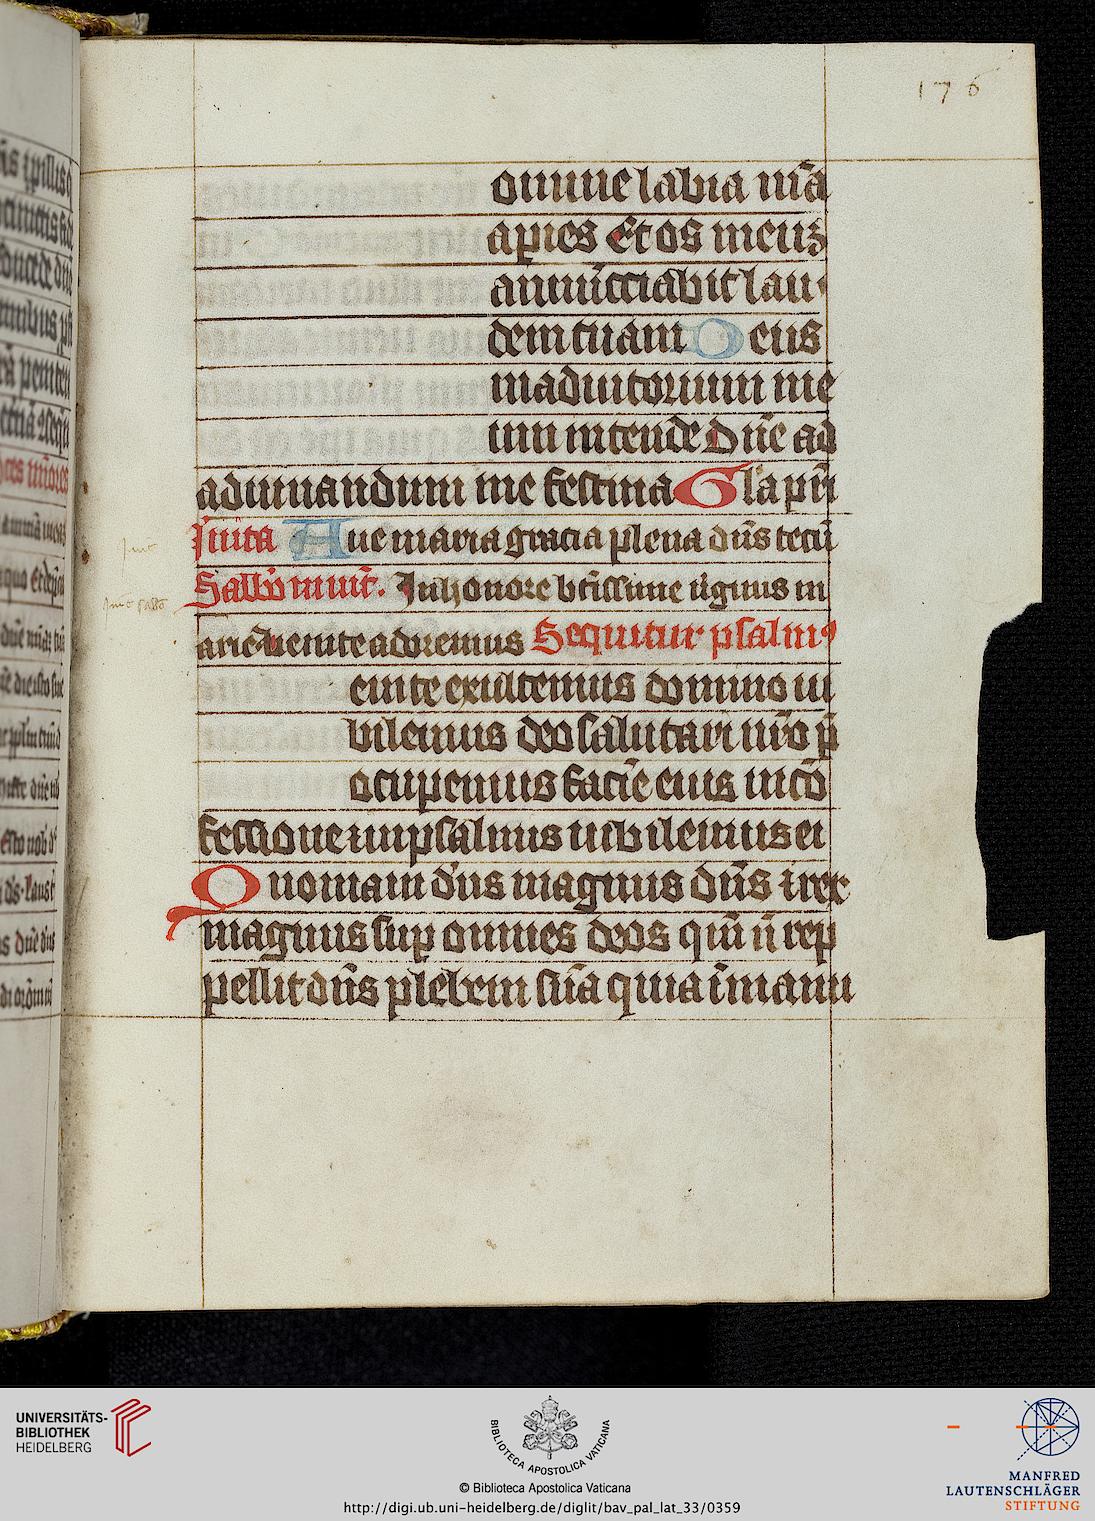 176
omine labia mēa
apies Et os meuʒ
annūcciabit lau
dem tuam Deus
in adiutorium me
um intende Dn̄e ad
adiuuandum me festina Gl'a pr̄i
Inuita Aue maria gracia plena dn̄s tecū
Sabb'o inuit̄. In honore bt̄issime v̄ginis m
arie venite adoremus Sequitur psalm9
enite exultemus domino iu
bilemus deo salutari nr̄o p̄
ocupemus facīe eius in cō
fessione ⁊ in psalmis iubilemus ei
Quoniam dn̄s magnus dn̄s ⁊ rex
magnus sup omnes deos qm̄ n̄ rep
pellit dn̄s plebem sūa quia ī manu
UNIVERSITÄTS-
BIBLIOTHEK
HEIDELBERG
BIBLIOTECA APOSTOLICA VATICANA
© Biblioteca Apostolica Vaticana
http://digi.ub.uni-heidelberg.de/diglit/bav_pal_lat_33/0359
MANFRED
LAUTENSCHLÄGER
STIFTUNG